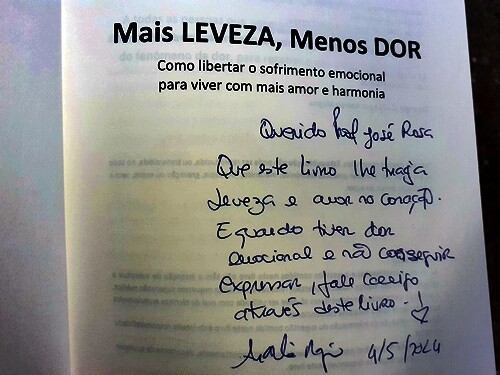 Mais LEVEZA, Menos DOR
Como libertar o sofrimento emocional
para viver com mais amor e harmonia
Querido Prof José Rosa
Que este livro lhe traga
leveza e amor no coração.
E quando tiver dor
emocional e não conseguir
expressar, fale comigo
através deste livro.
4/5/2024